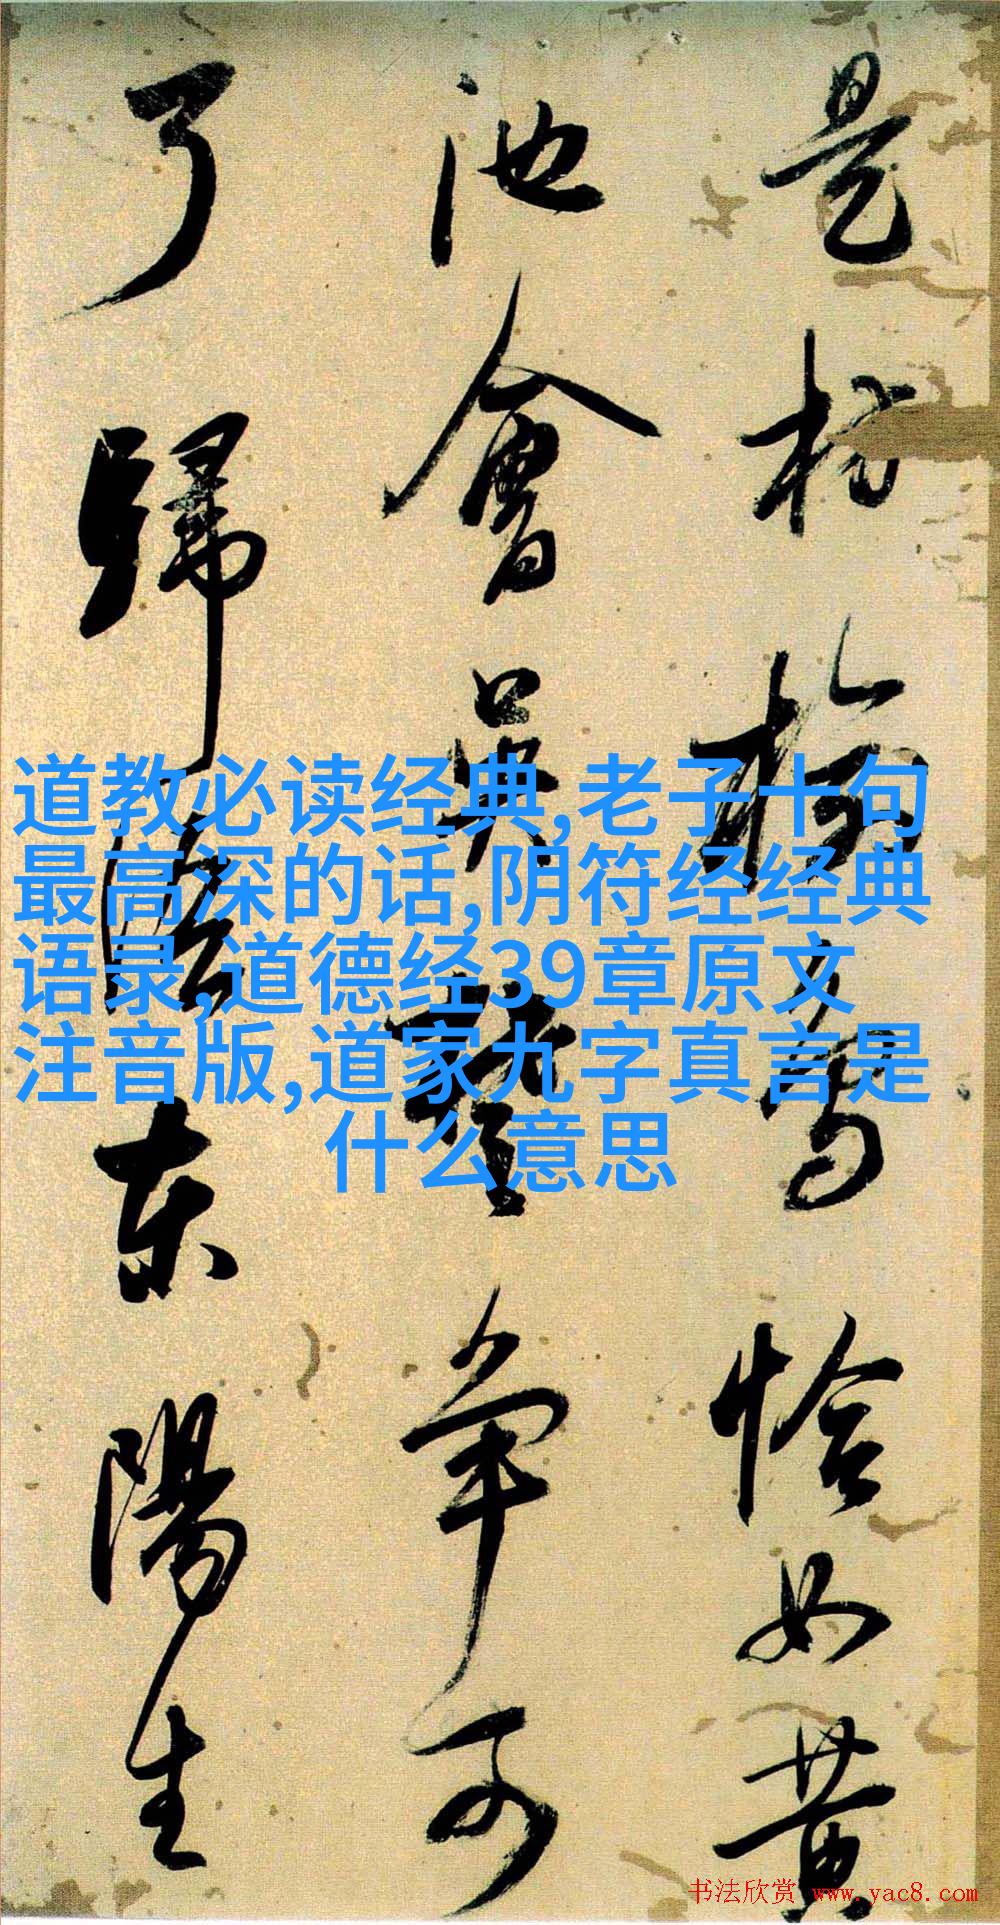 是 恰如黄
池會 可
了歸 東陽生
道教必读经典,老子十句
最高深的话,阴符经经典
语录,道德经39章原文
注音版,道家九字真言是
什么意思
书法欣赏 www.yac8.com